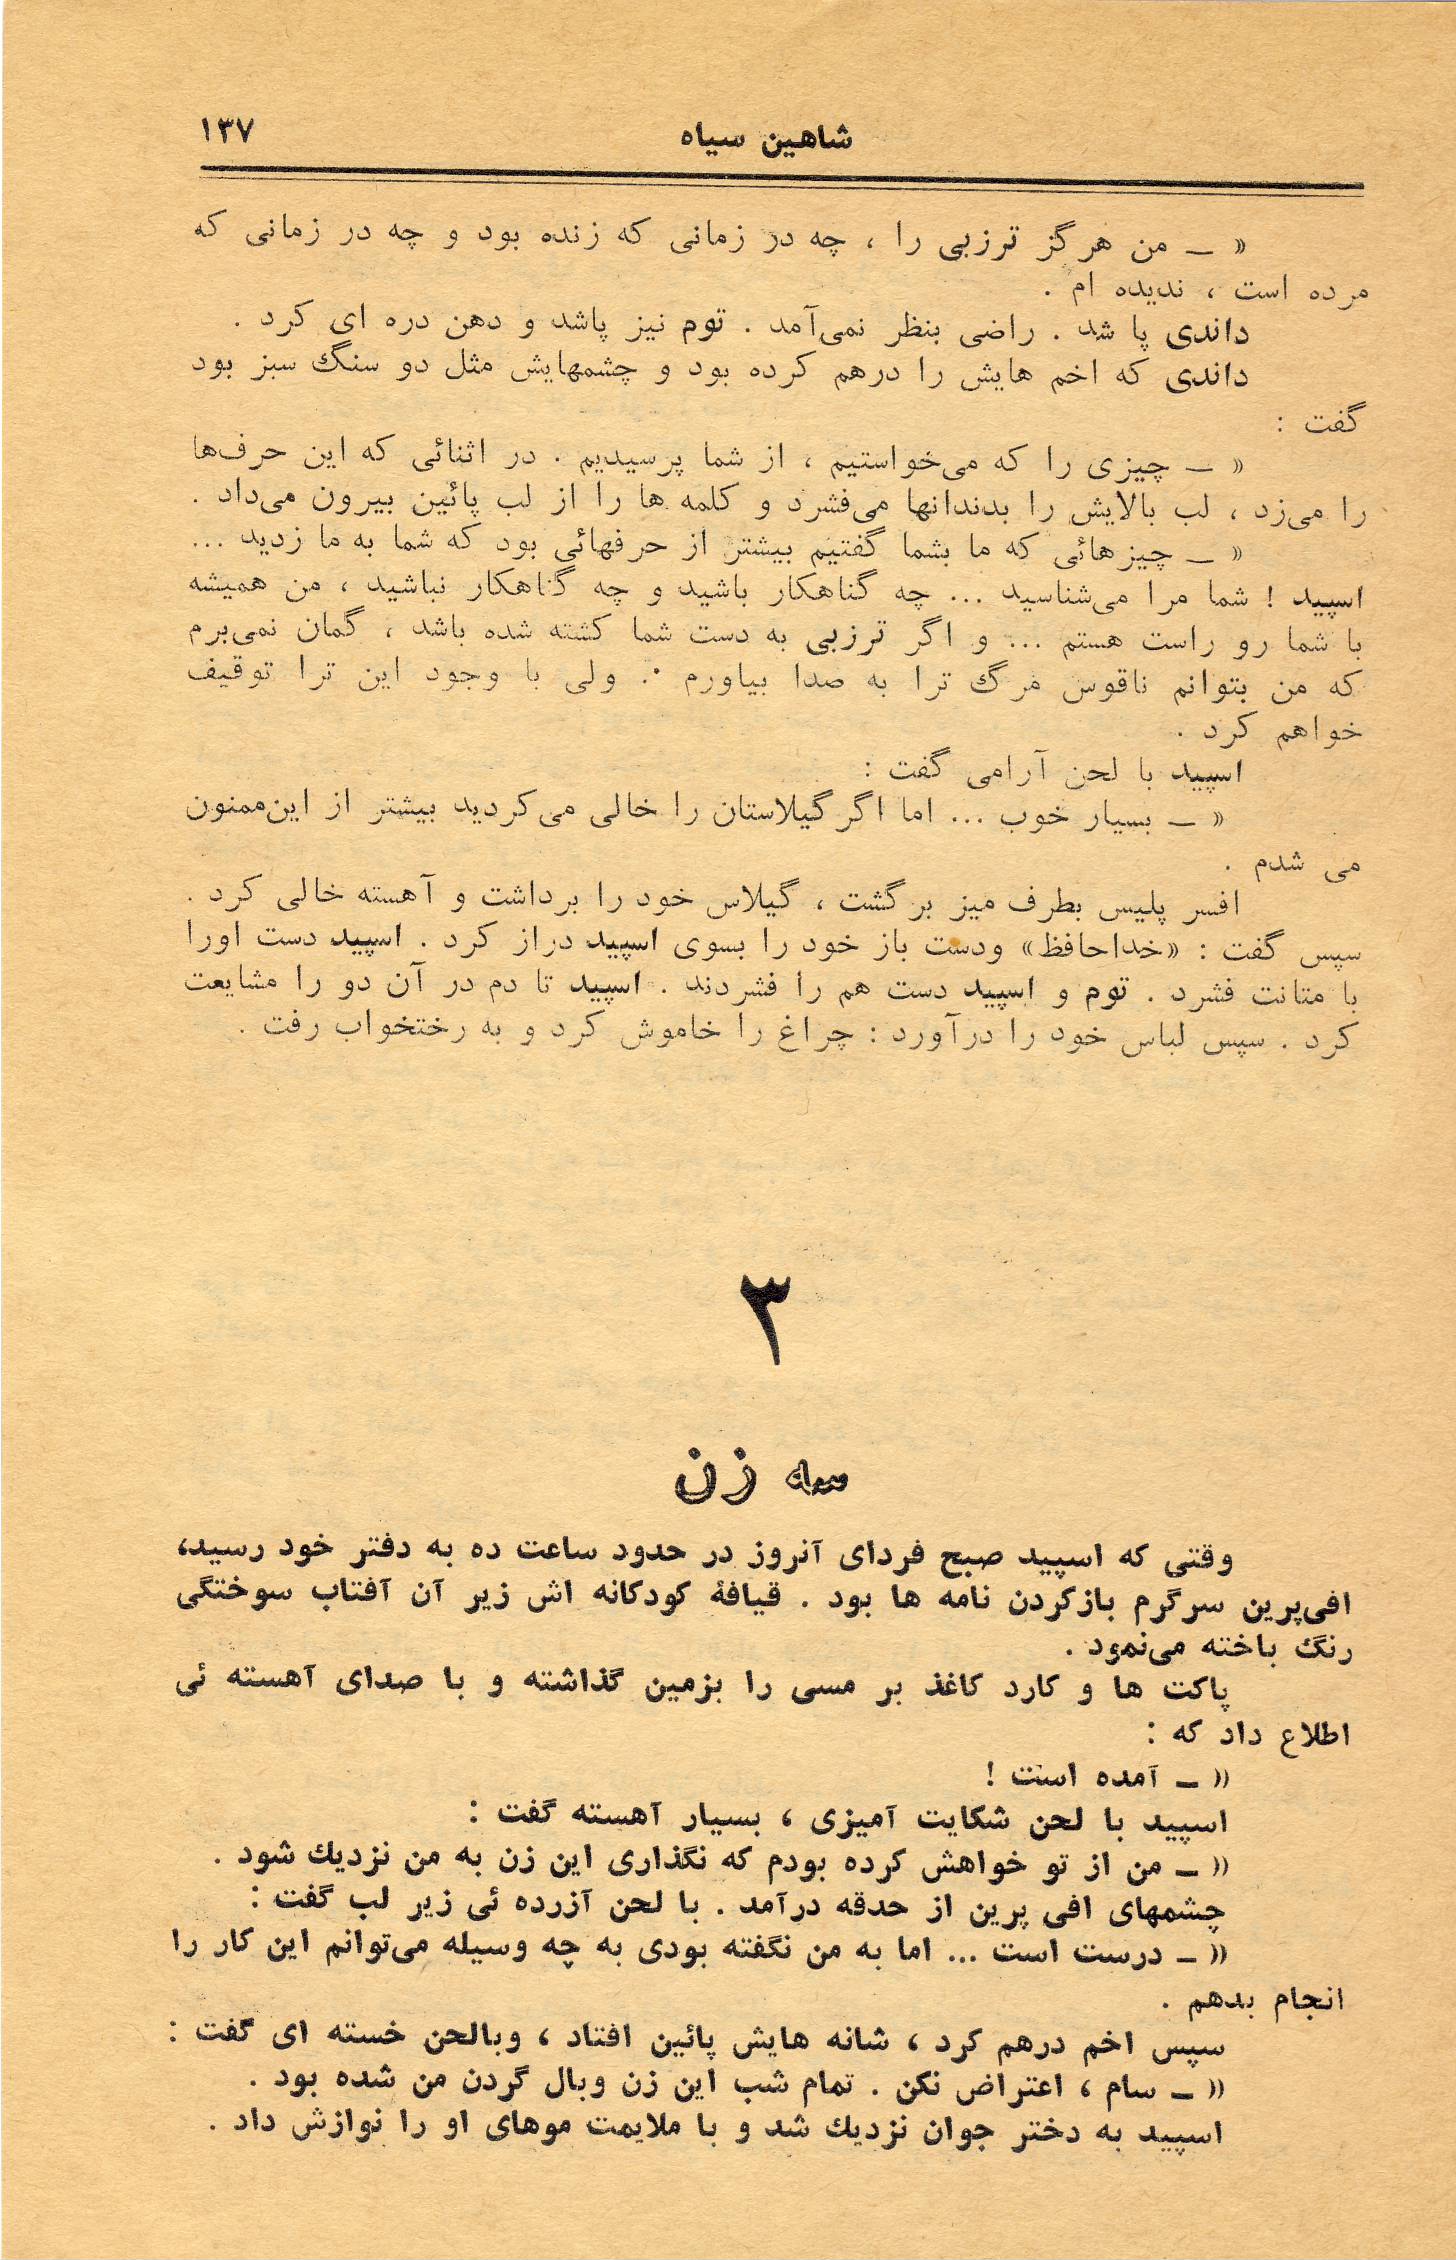 شاهین سیاه ۱۳۷
« ـ من هرگز ترزبی را ، چه در زمانی که زنده بود و چه در زمانی که
مرده است ، ندیده ام .
داندی پا شد . راضی بنظر نمی‌آمد . توم نیز پاشد و دهن دره ای کرد .
داندی که اخم هایش را درهم کرده بود و چشمهایش مثل دو سنگ سبز بود
گفت :
« ـ چیزی را که می‌خواستیم ، از شما پرسیدیم . در اثنائی که این حرف‌ها
را می‌زد ، لب بالایش را بدندانها می‌فشرد و کلمه ها را از لب پائین بیرون می‌داد .
« ـ چیزهائی که ما بشما گفتیم بیشتر از حرفهائی بود که شما به ما زدید ...
اسپید ! شما مرا می‌شناسید ... چه گناهکار باشید و چه گناهکار نباشید ، من همیشه
با شما رو راست هستم ... و اگر ترزبی به دست شما کشته شده باشد ، گمان نمی‌برم
که من بتوانم ناقوس مرگ ترا به صدا بیاورم . ولی با وجود این ترا توقیف
خواهم کرد .
اسپید با لحن آرامی گفت :
« ـ بسیار خوب ... اما اگر گیلاستان را خالی می‌کردید بیشتر از این‌ممنون
می شدم .
افسر پلیس بطرف میز برگشت ، گیلاس خود را برداشت و آهسته خالی کرد .
سپس گفت : «خداحافظ» ودست باز خود را بسوی اسپید دراز کرد . اسپید دست اورا
با متانت فشرد . توم و اسپید دست هم را فشردند . اسپید تا دم در آن دو را مشایعت
کرد . سپس لباس خود را درآورد : چراغ را خاموش کرد و به رختخواب رفت .
۳
سه زن
وقتی که اسپید صبح فردای آنروز در حدود ساعت ده به دفتر خود رسید،
افی‌پرین سرگرم بازکردن نامه ها بود . قیافهٔ کودکانه اش زیر آن آفتاب سوختگی
رنگ باخته می‌نمود .
پاکت ها و کارد کاغذ بر مسی را بزمین گذاشته و با صدای آهسته ئی
اطلاع داد که :
« ـ آمده است !
اسپید با لحن شکایت آمیزی ، بسیار آهسته گفت :
« ـ من از تو خواهش کرده بودم که نگذاری این زن به من نزدیك شود .
چشمهای افی پرین از حدقه درآمد . با لحن آزرده ئی زیر لب گفت :
« ـ درست است ... اما به من نگفته بودی به چه وسیله می‌توانم این کار را
انجام بدهم .
سپس اخم درهم کرد ، شانه هایش پائین افتاد ، وبالحن خسته ای گفت :
« ـ سام ، اعتراض نکن . تمام شب این زن وبال گردن من شده بود .
اسپید به دختر جوان نزدیك شد و با ملایمت موهای او را نوازش داد .